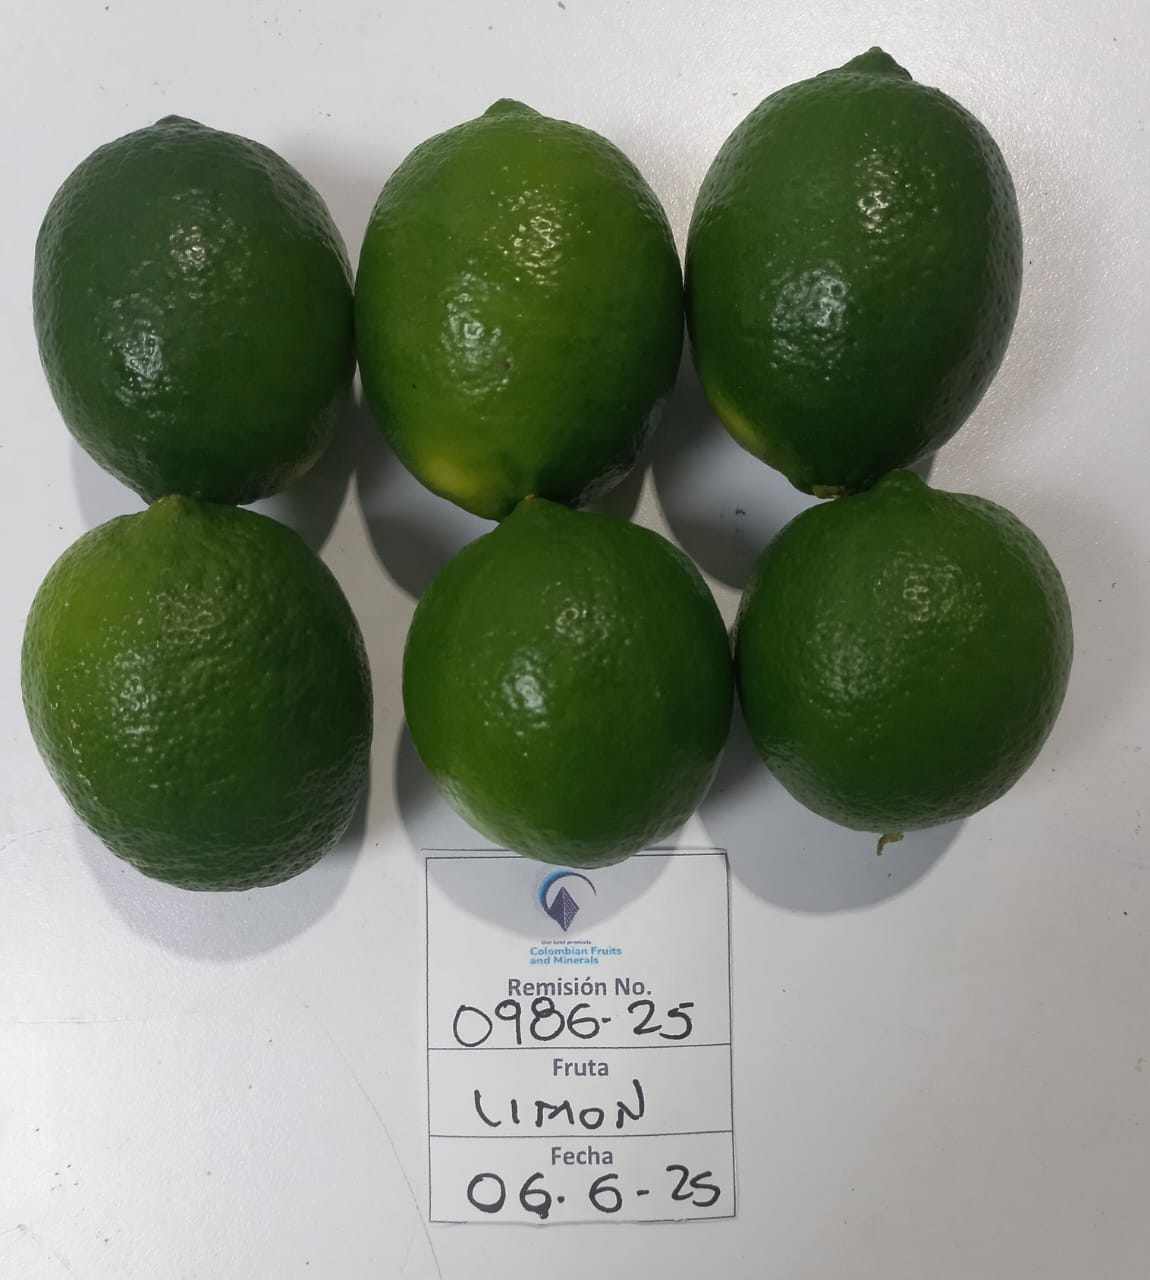 Our land products
Colombian Fruits
and Minerals
Remisión No.
0986-25
Fruta
LIMON
Fecha
06.6-25